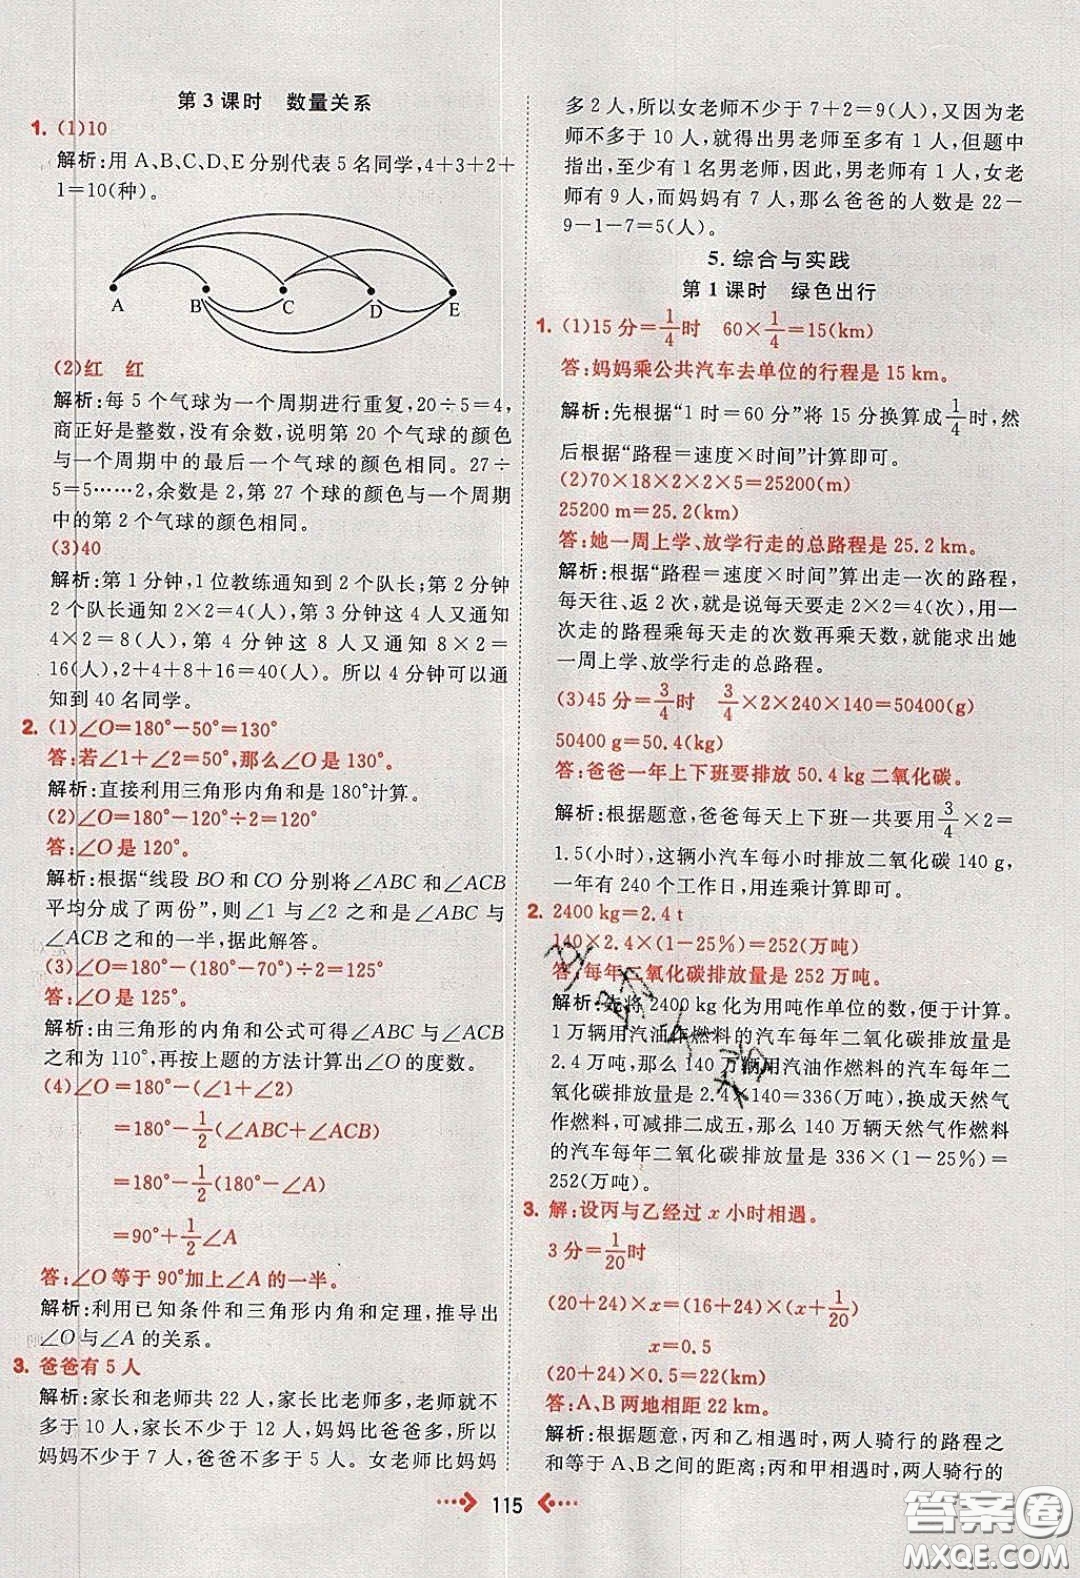 第3课时 数量关系
1. (1)10
解析:用A、B、C、D、E分别代表5名同学,4+3+2+
1=10(种)。
A B C D E
(2)红 红
解析:每5个气球为一个周期进行重复,20÷5=4,
商正好是整数,没有余数,说明第20个气球的颜色
与一个周期中的最后一个气球的颜色相同。27÷
5=5……2,余数是2,第27个球的颜色与一个周期
中的第2个气球的颜色相同。
(3)40
解析:第1分钟,1位教练通知到2个队长;第2分钟,
2个队长通知2×2=4(人),第3分钟这4人又通知
4×2=8(人),第4分钟这8人又通知8×2=
16(人),2+4+8+16=40(人)。所以4分钟可以通
知到40名同学。
2. (1)∠O=180°-50°=130°
答:若∠1+∠2=50°,那么∠O是130°。
解析:直接利用三角形内角和是180°计算。
(2)∠O=180°-120°÷2=120°
答:∠O是120°。
解析:根据“线段BO和CO分别将∠ABC和∠ACB
平均分成了两份”,则∠1与∠2的和是∠ABC与
∠ACB之和的一半,据此解答。
(3)∠O=180°-(180°-70°)÷2=125°
答:∠O是125°。
解析:由三角形的内角和公式可得∠ABC与∠ACB
之和为110°,再按上题的方法计算出∠O的度数。
(4)∠O=180°-(∠1+∠2)
=180°-1/2(∠ABC+∠ACB)
=180°-1/2(180°-∠A)
=90°+1/2∠A
答:∠O等于90°加上∠A的一半。
解析:利用已知条件和三角形内角和定理,推导出
∠O与∠A的关系。
3. 爸爸有5人
解析:家长和老师共22人,家长比老师多,老师就不
多于10人,家长不少于12人,妈妈比爸爸多,所以
妈妈不少于7人,爸爸不多于5人。女老师比妈妈
多2人,所以女老师不少于7+2=9(人),又因为老
师不多于10人,就得出男老师至多有1人,但题中
指出,至少有1名男老师,因此,男老师有1人,女老
师有9人,而妈妈有7人,那么爸爸的人数是22-
9-1-7=5(人)。
5.综合与实践
第1课时 绿色出行
1. (1)15分=1/4时 60×1/4=15(km)
答:妈妈乘公共汽车去单位的行程是15 km。
解析:先根据“1时=60分”将15分换算成1/4时,然
后根据“路程=速度×时间”计算即可。
(2)70×18×2×2×5=25200(m)
25200 m=25.2(km)
答:她一周上学、放学行走的总路程是25.2 km。
解析:根据“路程=速度×时间”算出走一次的路程,
每天往、返2次,就是说每天要走2×2=4(次),用一
次走的路程乘每天走的次数再乘天数,就能求出她
一周上学、放学行走的总路程。
(3)45分=3/4时 3/4×2×240×140=50400(g)
50400 g=50.4(kg)
答:爸爸一年上下班要排放50.4 kg二氧化碳。
解析:根据题意,爸爸每天上下班一共要用3/4×2=
1.5(小时),这辆小汽车每小时排放二氧化碳140 g,
一年有240个工作日,用连乘计算即可。
2. 2400 kg=2.4 t
140×2.4×(1-25%)=252(万吨)
答:每年二氧化碳排放量是252万吨。
解析:先将2400 kg化为用吨作单位的数,便于计算。
1万辆用汽油作燃料的汽车每年二氧化碳排放量是
2.4万吨,那么140万辆用汽油作燃料的汽车每年二
氧化碳排放量是2.4×140=336(万吨),换成天然气
作燃料,可减排二成五,那么140万辆天然气作燃料
的汽车每年二氧化碳排放量是336×(1-25%)=
252(万吨)。
3. 解:设丙与乙经过x小时相遇。
3分=1/20时
(20+24)×x=(16+24)×(x+1/20)
x=0.5
(20+24)×0.5=22(km)
答:A、B两地相距22 km。
解析:根据题意,丙和乙相遇时,两人骑行的路程之
和等于A、B之间的距离;丙和甲相遇时,两人骑行的
115
答案圈
MXQE.COM